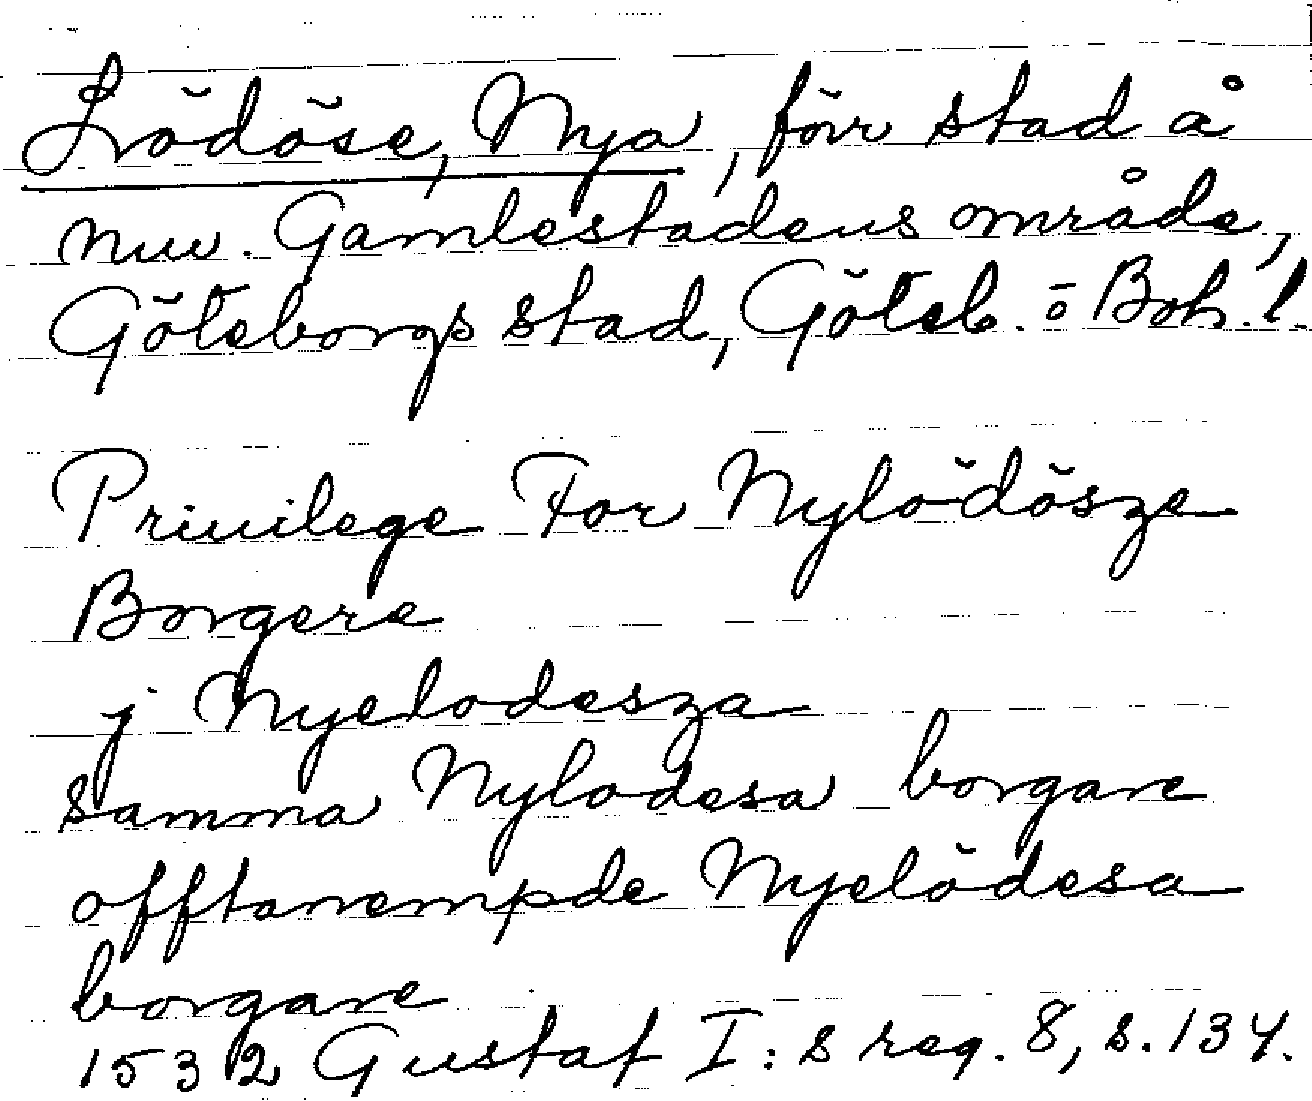 Lödöse, Nya, förr stad å
nuv. Gamlestadens område,
Göteborgs stad, Göteb. o Boh. l.
Priuilege For Nylödösze
Borgere
j Nyelodesza
samma Nylodesa borgare
offtanempde Nyelödesa
borgare
1532 Gustaf I:s reg. 8, s. 134.